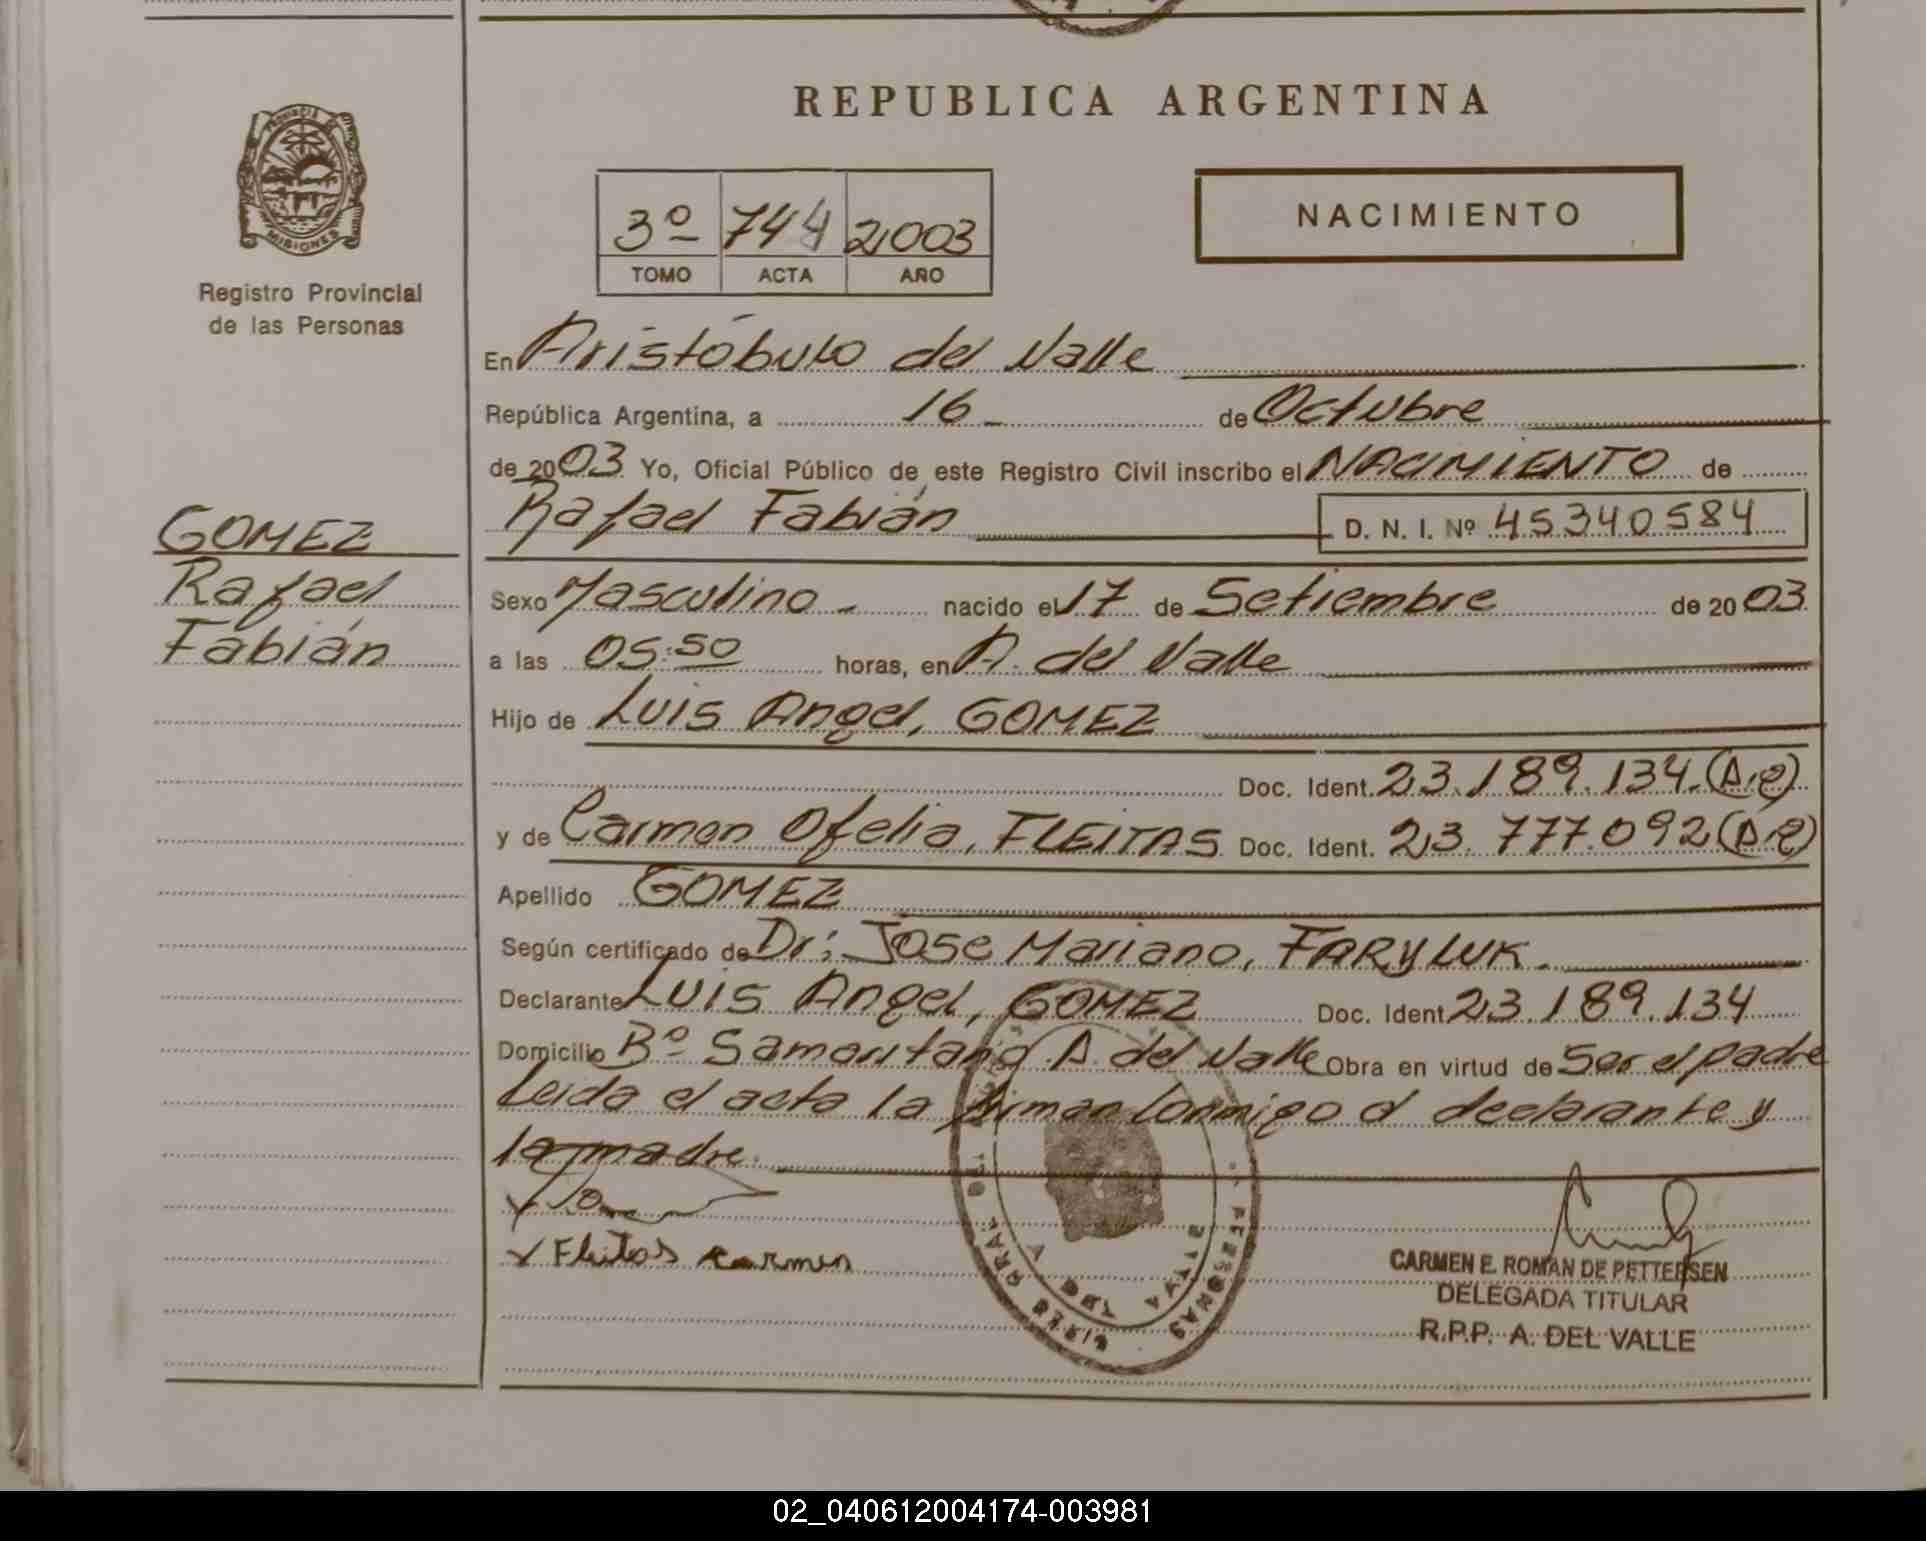 REPUBLICA ARGENTINA
PROVINCIA DE
MISIONES
Registro Provincial
de las Personas
3º 744 2003
TOMO ACTA AÑO
NACIMIENTO
En Aristóbulo del Valle
República Argentina, a 16 de Octubre
de 2003 Yo, Oficial Público de este Registro Civil inscribo el NACIMIENTO de
Rafael Fabián D. N. I. Nº 45340584
GOMEZ
Rafael
Fabián
Sexo Masculino nacido el 17 de Setiembre de 2003
a las 05:50 horas, en A. del Valle
Hijo de Luis Angel, GOMEZ
Doc. Ident. 23.189.134.(A.e)
y de Carmen Ofelia, FLEITAS Doc. Ident. 23.777.092(A.e)
Apellido GOMEZ
Según certificado de Dr: Jose Mariano, FARYLUK.
Declarante Luis Angel, GOMEZ Doc. Ident. 23.189.134
Domicilio Bº Samaritano A. del Valle Obra en virtud de Ser el padre
Leida el acta la firman Conmigo el declarante y
la madre.
Fleitas Carmen
CARMEN E. ROMAN DE PETTERSEN
DELEGADA TITULAR
R.P.P. A. DEL VALLE
02_040612004174-003981